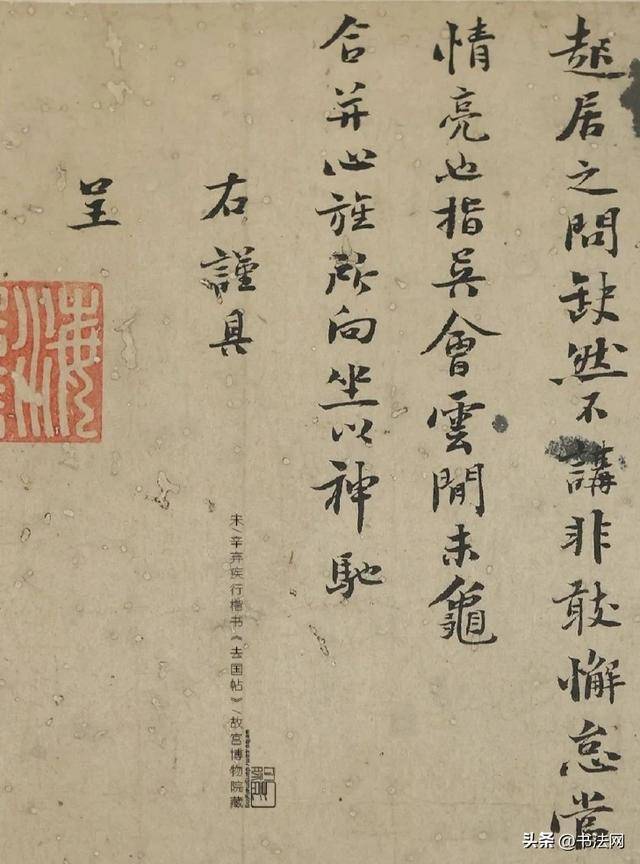 起居之問缺然不講非敢懈怠當
情亮也指吳會雲間未龜
合并心旌所向坐以神馳
右謹具
呈
宋/辛弃疾行楷书《去国帖》/故宫博物院藏
头条 @书法网